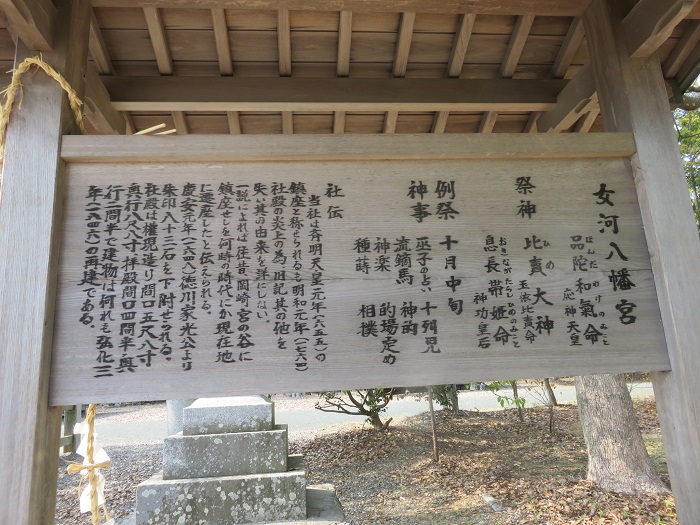 女河八幡宮
ほんだわけのみこと
品陀和氣命
応神天皇
祭神
ひめ
比賣大神
玉依比賣命
おきながたらしひめのみこと
息長帯姫命
神功皇后
例祭 十月中旬
神事 巫子のとい 十列児
流鏑馬 神的 的場定め
神楽 相撲
種蒔
社伝
当社は斉明天皇元年(六五五)の
鎮座と称せられるも明和元年(一七六四)
社殿の炎上の為旧記其の他を
失い其の由来を詳にしない。
一説によれば往昔、岡崎宮の谷に
鎮座せしを何時の時代にか現在地
に遷座したと伝えられる。
慶安元年(一六四八)徳川家光公より
朱印八十三石を下附せらる。
社殿は権現造り間口五尺八寸
奥行八尺八寸、拝殿間口四間半、奥
行二間半で建物は何れも弘化三
年(一八四六)の再建である。